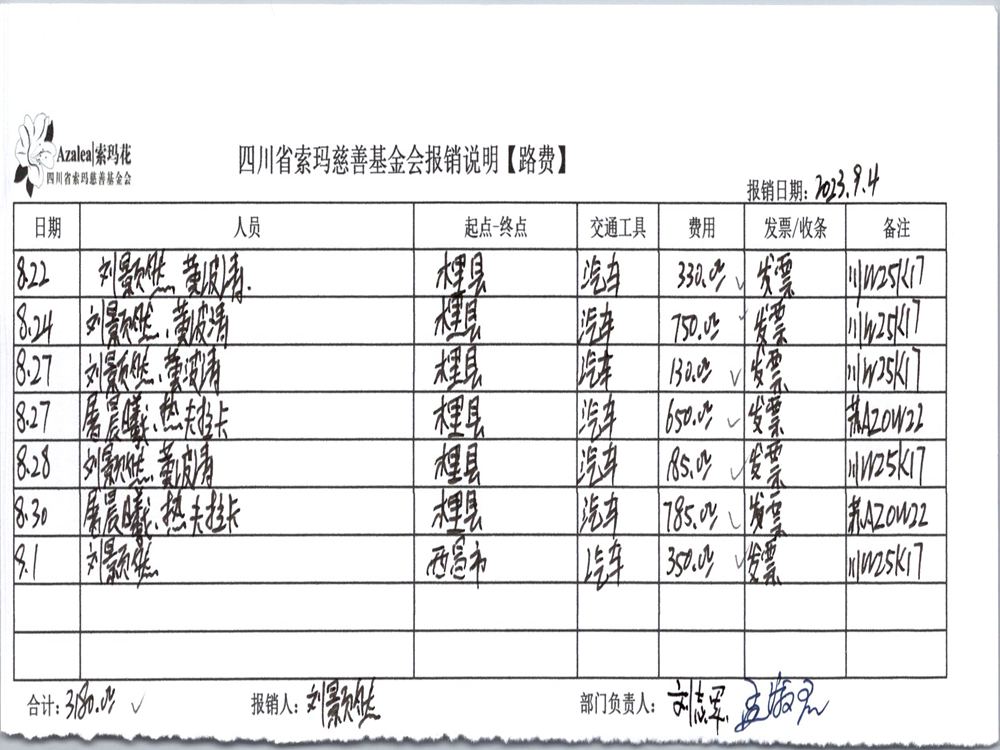 Azalea|索玛花
四川省索玛慈善基金会
四川省索玛慈善基金会报销说明【路费】
报销日期：2023.9.4
日期 人员 起点-终点 交通工具 费用 发票/收条 备注
8.22 刘颢然、黄波清. 木里县 汽车 330.00 发票 川W25K17
8.24 刘颢然、黄波清 木里县 汽车 750.00 发票 川W25K17
8.27 刘颢然、黄波清 木里县 汽车 130.00 发票 川W25K17
8.27 屠晨曦、热夫拉卡 木里县 汽车 650.00 发票 苏AZ0W22
8.28 刘颢然、黄波清 木里县 汽车 185.00 发票 川W25K17
8.30 屠晨曦、热夫拉卡 木里县 汽车 785.00 发票 苏AZ0W22
9.1 刘颢然 西昌市 汽车 350.00 发票 川W25K17
合计：3180.00 报销人：刘颢然 部门负责人：刘志军